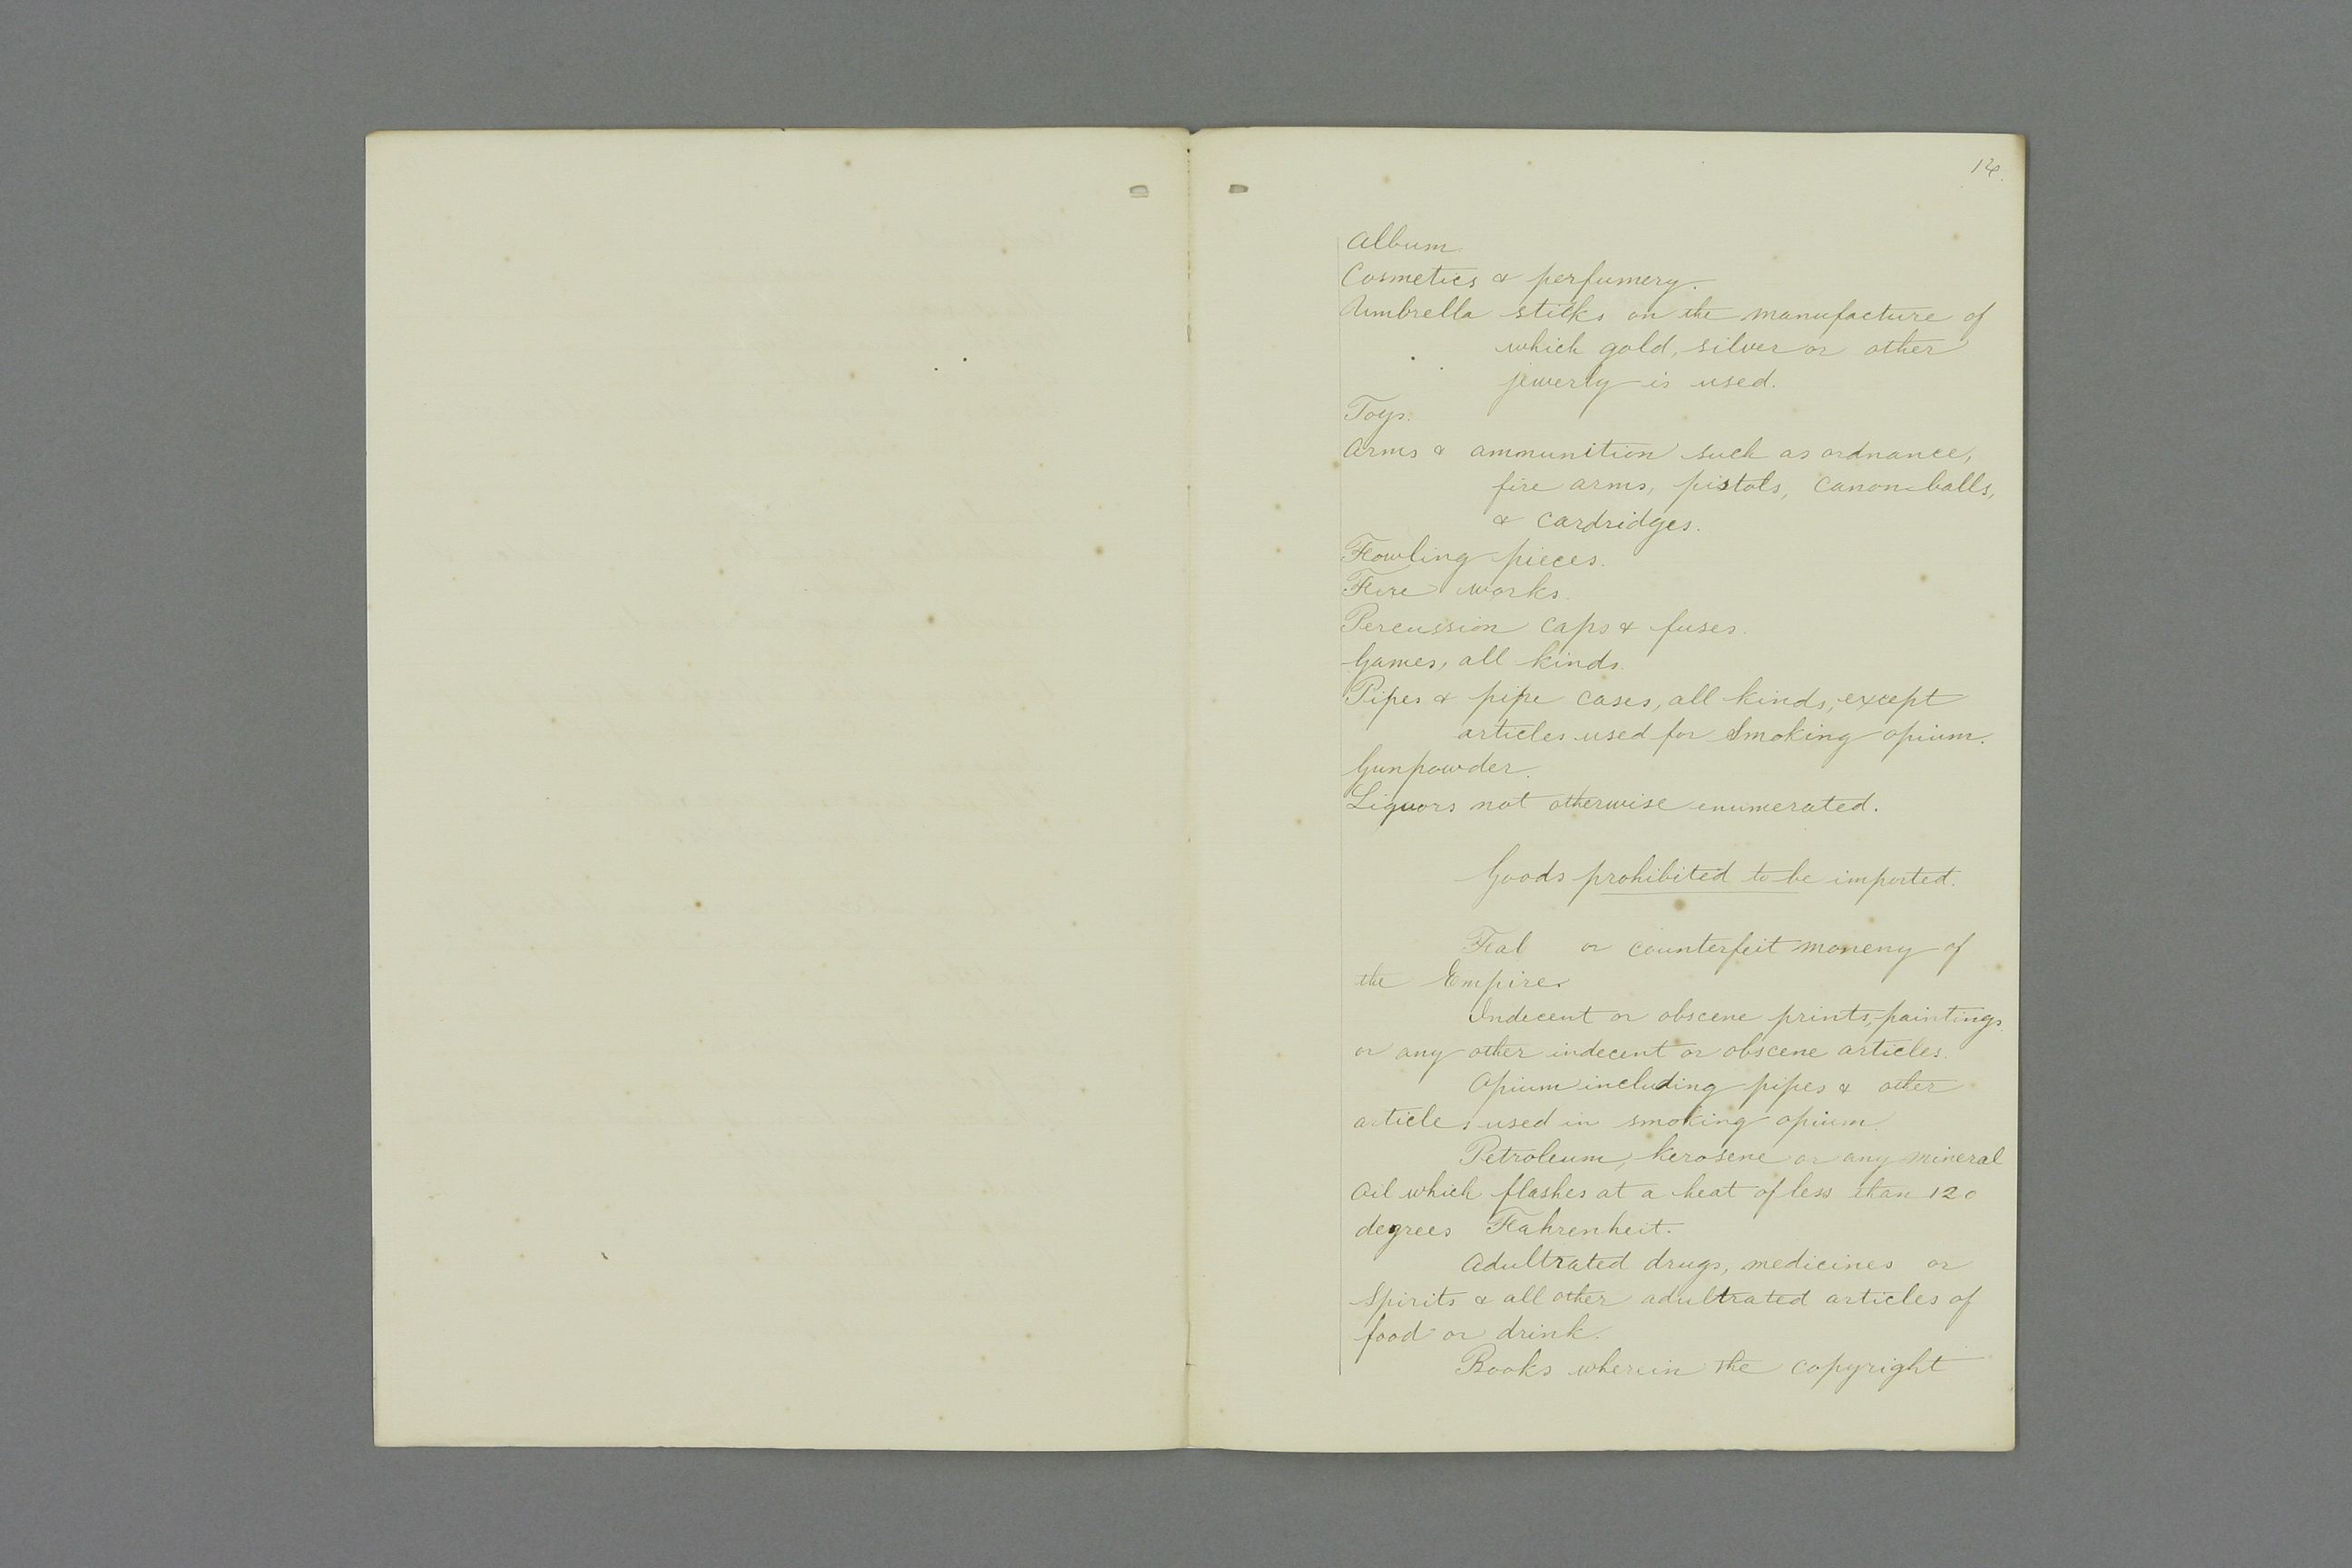 14.
Album.
Cosmetics & perfumery.
Umbrella sticks on the manufacture of
which gold, silver or other
jewerly is used.
Toys.
Arms & ammunition such as ordnance,
fire arms, pistols, canon balls,
& cardridges.
Fowling pieces.
Fire works.
Percussion caps & fuses.
Games, all kinds.
Pipes & pipe cases, all kinds, except
articles used for smoking opium.
Gunpowder.
Liquors not otherwise enumerated.
Goods prohibited to be imported.
or counterfeit moneny of
the Empire.
Indecent or obscene prints, paintings
or any other indecent or obscene articles.
Opium including pipes & other
articles used in smoking opium.
Petroleum, kerosene or any mineral
Oil which flashes at a heat of less than 120
degrees Fahrenheit.
Adultrated drugs, medicines or
Spirits & all other adultrated articles of
food or drink.
Books wherein the copyright